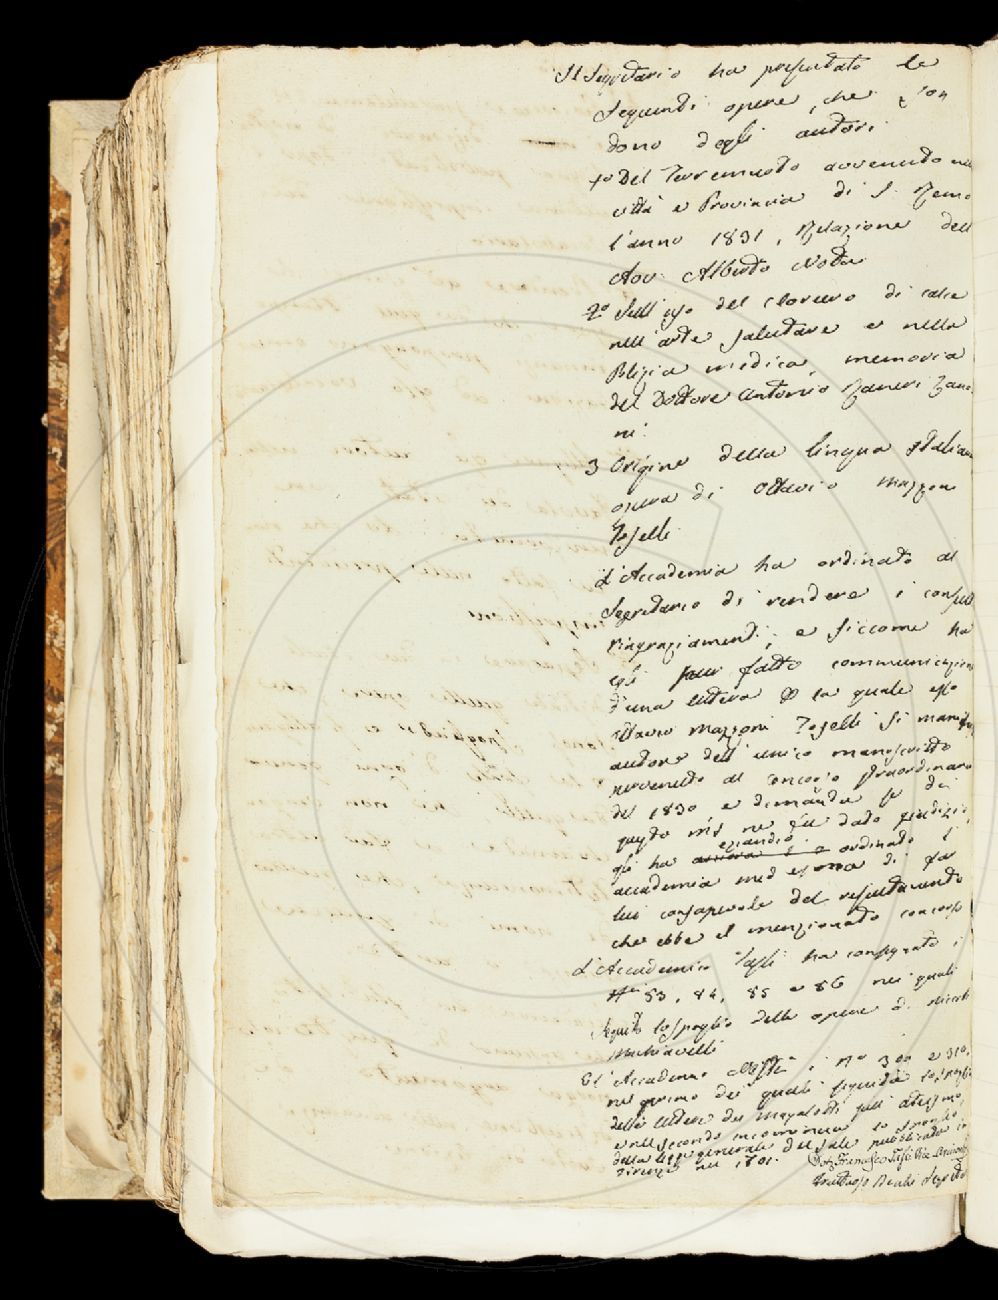 Il Segretario ha presentato le
seguenti opere, che son
dono degli autori
1º Del Terremoto avvenuto nella
città e Provincia di S. Remo
l'anno 1831, Relazione dell
Avv. Alberto Nota
2º Sull'uso del cloruro di calce
nell'arte salutare e nella
Polizia medica, memoria
del Dottore Antonio Ranieri Zano
ni.
3 Origine della lingua Italiana
opera di Ottavio Mazzoni
Toselli
L'Accademia ha ordinato al
Segretario di rendere i consueti
ringraziamenti; e siccome ha
egli pur fatto communicazione
d'una lettera la quale esso
Ottavio Mazzoni Toselli si manifesta
autore dell'unico manoscritto
pervenuto al concorso straordinario
del 1830 e dimanda se di
questo ms ne fu dato giudizio,
gli ha eziandio ordinato l'
accademia medesima di far
lui consapevole del resultamento
che ebbe il menzionato concorso
L'Accademico Tassi ha consegnato i
Nri 83, 84, 85 e 86 nei quali
seguita lo spoglio delle opere di Niccolò
Machiavelli
E l'Accademico i Nri 300 e 310,
nel primo dei quali seguita lo spoglio
delle lettere del Magalotti sull'ateismo,
e nel secondo incomincia lo spoglio
della legge generale del sale pubblicata in
Firenze nel 1701.
Dott. Francesco Tassi Vice Arciconsolo
Fruttuoso Becchi Segretario